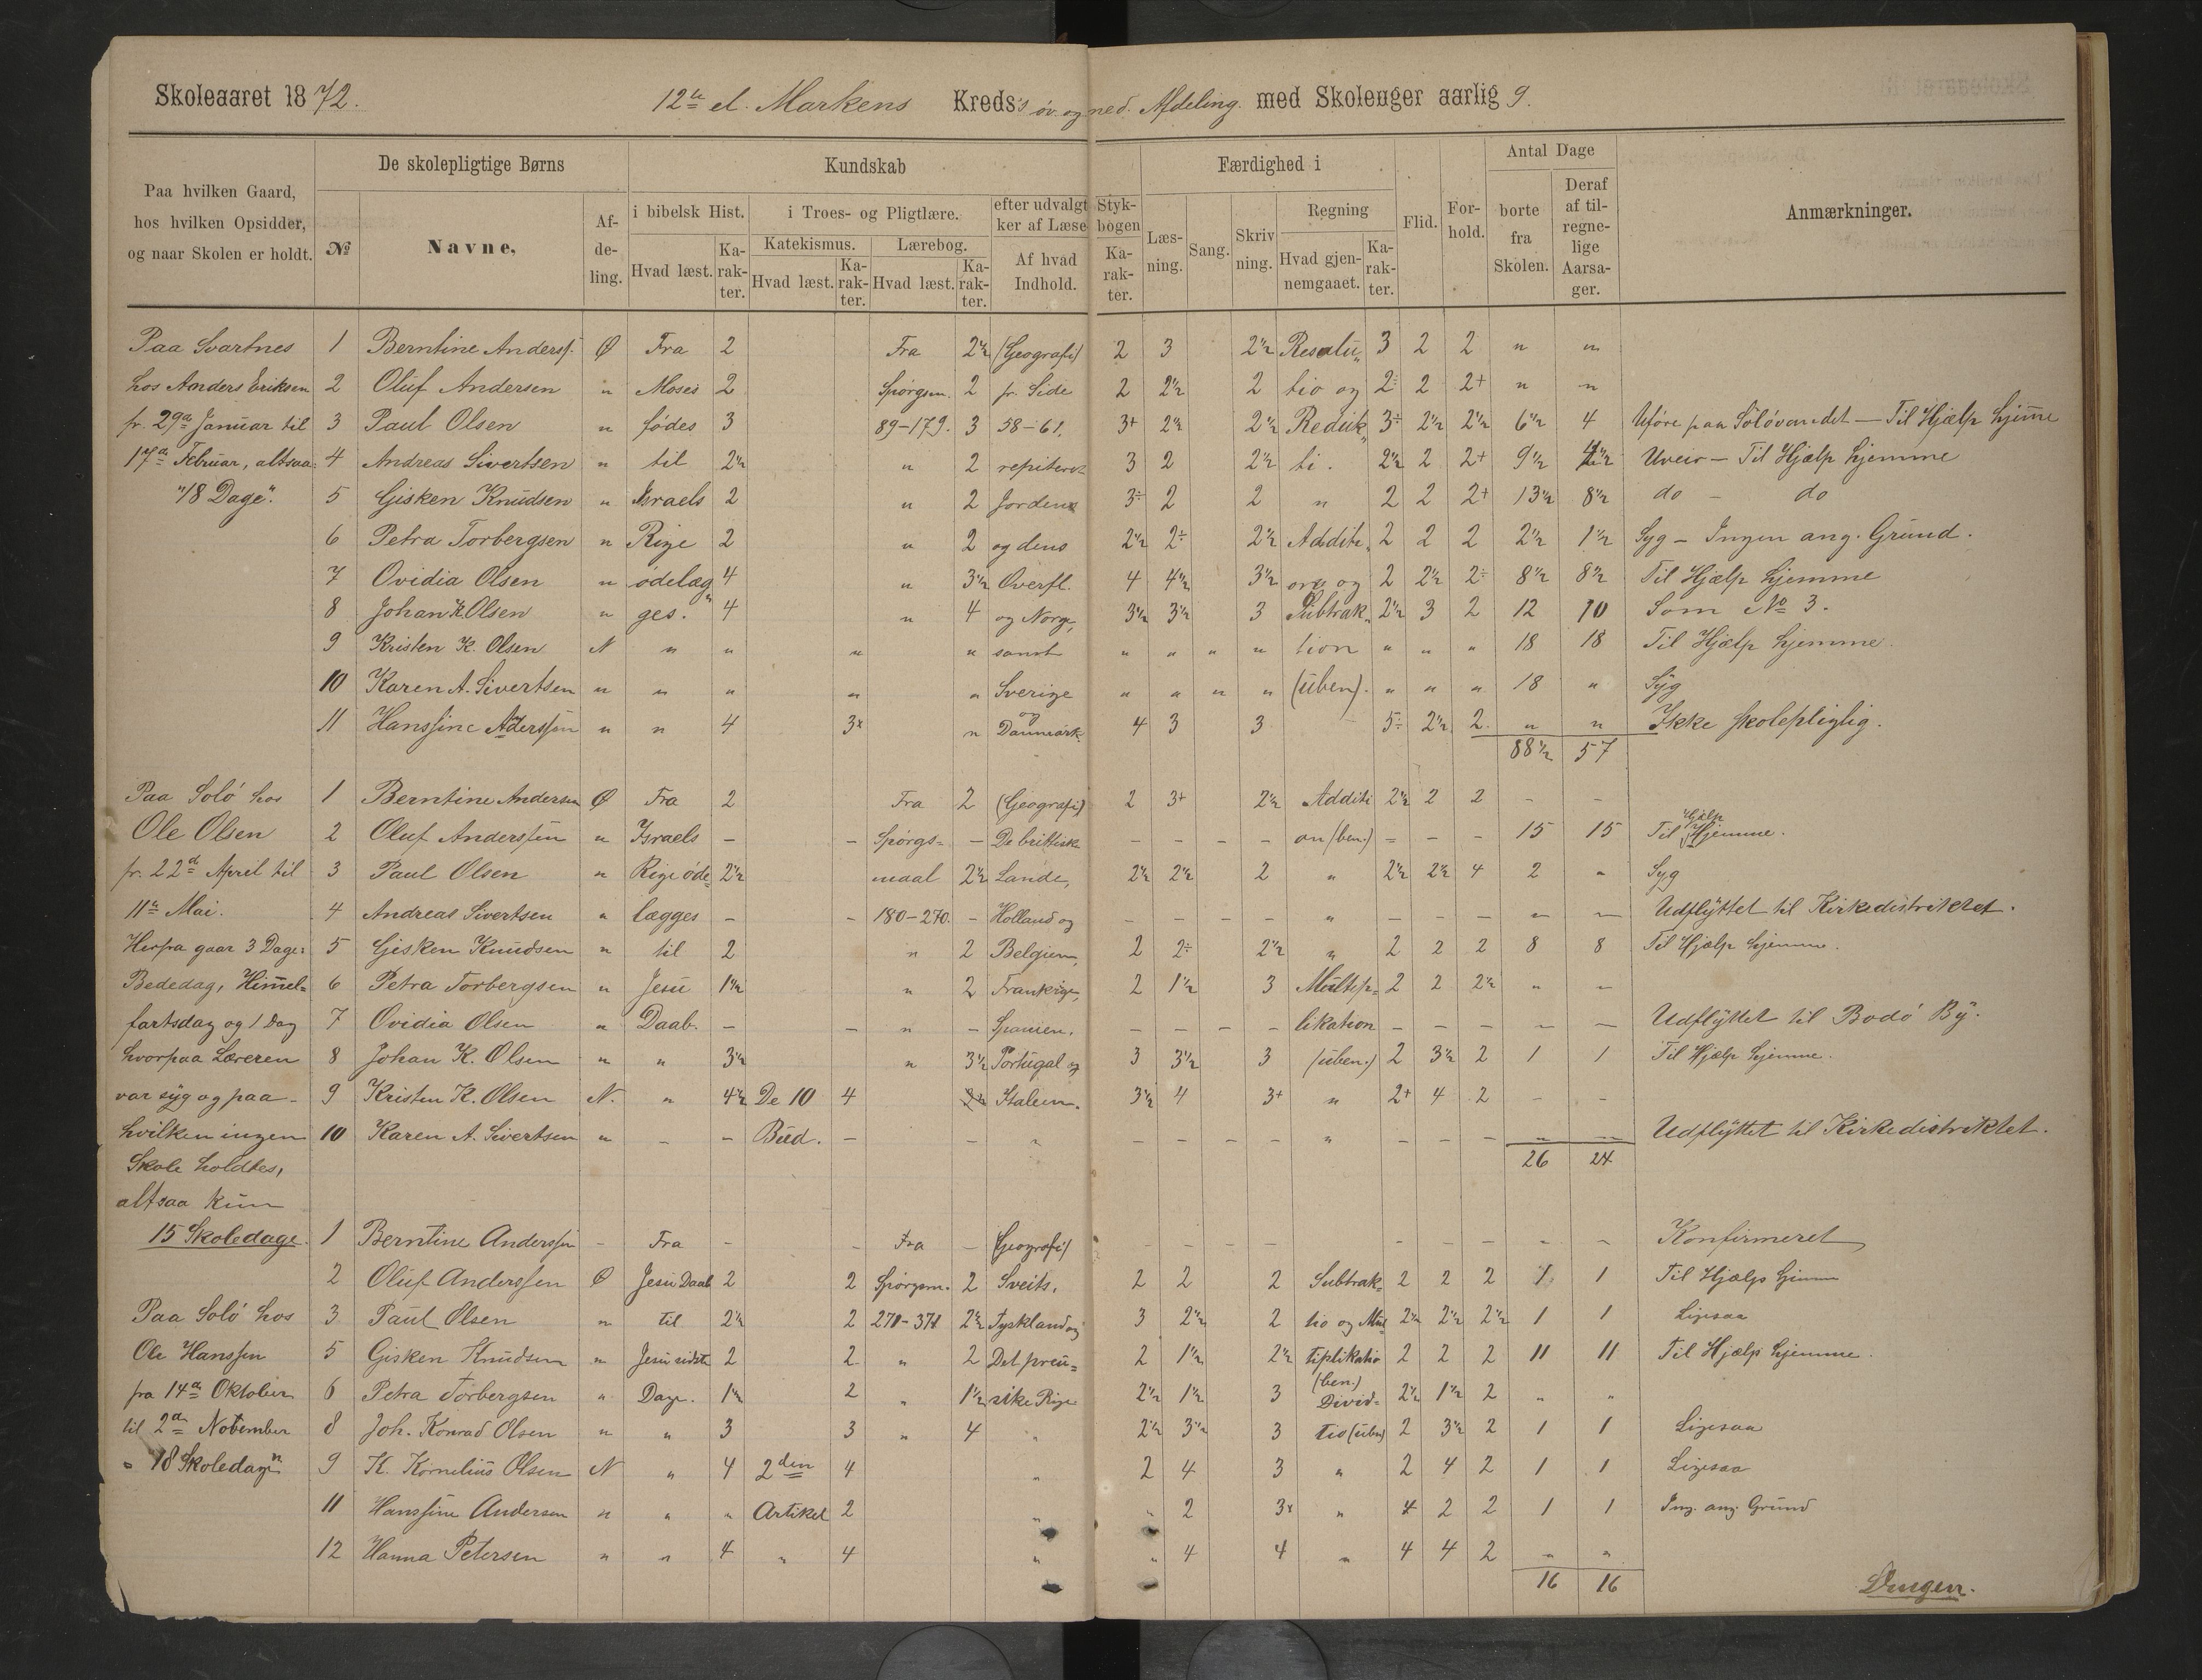 Skoleaaret 1872. 12te el. Markens Kreds's øv. og ned. Afdeling med Skoleuger aarlig 9.
Paa hvilken Gaard, hos hvilken Opsidder, og naar Skolen er holdt.
De skolepligtige Børns
№ Navne, Afdeling.
Kundskab
i bibelsk Hist. Hvad læst. Karakter.
i Troes- og Pligtlære.
Katekismus. Hvad læst. Karakter.
Lærebog. Hvad læst. Karakter.
efter udvalgt ker af Læse Af hvad Indhold.
Stykbogen Karakter.
Færdighed i
Læsning. Sang. Skrivning.
Regning Hvad gjennemgaaet. Karakter.
Flid. Forhold.
Antal Dage
borte fra Skolen.
Deraf af tilregnelige Aarsager.
Anmærkninger.
Paa Svartnes 1 Berntine Anderss. Ø Fra 2 Fra 2½ (Geografi) 2 3 2½ Resolu„ 3 2 2 „ „
hos Anders Eriksen 2 Oluf Andersen „ Moses 2 Spørgsm. 2 fr. Side 2 2½ 2 tio og 2÷ 2 2+ „ „
fr. 29de Januar til 3 Paul Olsen „ fødes 3 89-179. 3 58-61. 3+ 2½ 2½ Reduk„ 3÷ 2½ 2½ 6½ 4 Uføre paa Soløvandet — Til Hjælp hjemme
17de Februar, altsaa: 4 Andreas Sivertsen „ til 2½ „ 2 repiteret 3 2 2½ ti. 2½ 2 2+ 9½ Uveir — Til Hjælp hjemme
"18 Dage". 5 Gisken Knudsen „ Israels 2 „ 2 Jorden 3÷ 2 2 „ 2 2 2+ 13½ 8½ do — do
6 Petra Torbergsen „ Rige 2 „ 2 og dens 2½ 2÷ 2½ Additi„ 2 2 2 2½ 1½ Syg — Ingen ang. Grund.
7 Ovidia Olsen „ ødelæg„ 4 „ 3½ Overfl. 4 4½ 3½ on og 2 2½ 2÷ 8½ 8½ Til Hjælp hjemme
8 Johan K Olsen „ ges. 4 „ 4 og Norge, 3½ 3½ 3 Subtrak„ 2½ 3 2 12 10 Som No 3.
9 Kristen K. Olsen N „ „ „ „ samt „ „ „ „ tion „ „ „ 18 18 Til Hjælp hjemme.
10 Karen A. Sivertsen „ „ „ „ „ Sverige „ „ „ „ (uben). „ „ „ 18 „ Syg
11 Hanssine Anderssen „ „ 4 3x „ og Danmark. 4 3 3 5÷ 2½ 2 „ „ Ikke skolepligtig.
88½ 57
Paa Solø hos 1 Berntine Andersen Ø Fra 2 Fra 2 (Geografi) 2 3+ 2½ Additi 2½ 2 2 - -
Ole Olsen 2 Oluf Anderssen „ Israels - - Spørgs- - De brittisk - - - - on (ben.) - - - 15 15 Til Hjælp Hjemme.
fr. 22de April til 3 Paul Olsen „ Rige øde- 2½ maal 2½ Lande, 2½ 2½ 2 „ 2½ 2½ 4 2 „ Syg
11te Mai. 4 Andreas Sivertsen „ lægges - - 180-270. - Holland og - - - - „ - - - - - Udflyttet til Kirkedistriktet.
Herfra gaar 3 Dage: 5 Gisken Knudsen „ til 2 „ 2 Belgien, 2 2÷ 2½ „ 2 2 2 8 8 Til Hjælp hjemme.
Bededag, Himmel- 6 Petra Torbergsen „ Jesu 1½ „ 2 Frankrige, 2 1½ 3 Multip- 2 2 2½ „ -
fartsdag og 1 Dag 7 Ovidia Olsen „ Daab. - - „ - Spanien. - - - - likation - - - - - Udflyttet til Bodø By.
hvorpaa Læreren 8 Johan K. Olsen „ „ 3½ „ 3½ Portugal og 3 3½ 3 (uben.) 2 3½ 2 1 1 Til Hjælp hjemme.
var syg og paa- 9 Kristen K. Olsen N. „ 4½ De 10 4 Italien. 3½ 4 3+ „ 2+ 4 2 - -
hvilken ingen 10 Karen A. Sivertsen „ - - Bud. - - „ - - - - „ - - - - - Udflyttet til Kirkedistriktet.
Skole holdtes, 26 24
altsaa kun
15 Skoledage. 1 Berntine Anderssen - Fra - - Fra - (Geografi) - - - - - - - - - Konfirmeret
2 Oluf Anderssen Ø Jesu Daab 2 2 Spørgsm. 2 Sveits, 2 2 2 Subtrak- 2 2 2 1 1 Til Hjælp hjemme
Paa Solø hos 3 Paul Olsen „ til 2½ 2 2½ Tyskland og 3 2½ 2 tio og Mul- 2½ 2½ 2½ 1 1 Ligesaa
Ole Hanssen 5 Gisken Knudsen „ Jesu sidste 2 2 „ 2 Det preu- 2 1½ 2½ tiplikatio 2 2 2 11 11 Til Hjælp hjemme.
fra 14de Oktober 6 Petra Torbergsen „ Dage. 1½ 2 „ 1½ siske Rige 2½ 1½ 3 (ben.) Divid- 2½ 1½ 2 „ „
til 2den November 8 Joh. Konrad Olsen „ „ 3 3 „ 4 „ 2½ 3½ 3 tio (uben) 2 3½ 2 1 1 Ligesaa
„ 18 Skoledage" 9 K. Kornelius Olsen N „ 4 2den 4 „ 2 4 3 „ 2 4 2 1 1 Ligesaa
11 Hanssine Andersen „ „ „ Artikel 2 „ „ 2 3x „ 4 2 2 1 1 Ing. ang. Grund
12 Hanna Petersen „ „ 4 „ 4 „ „ 4 4 „ 4 4 2 „ „
16 16